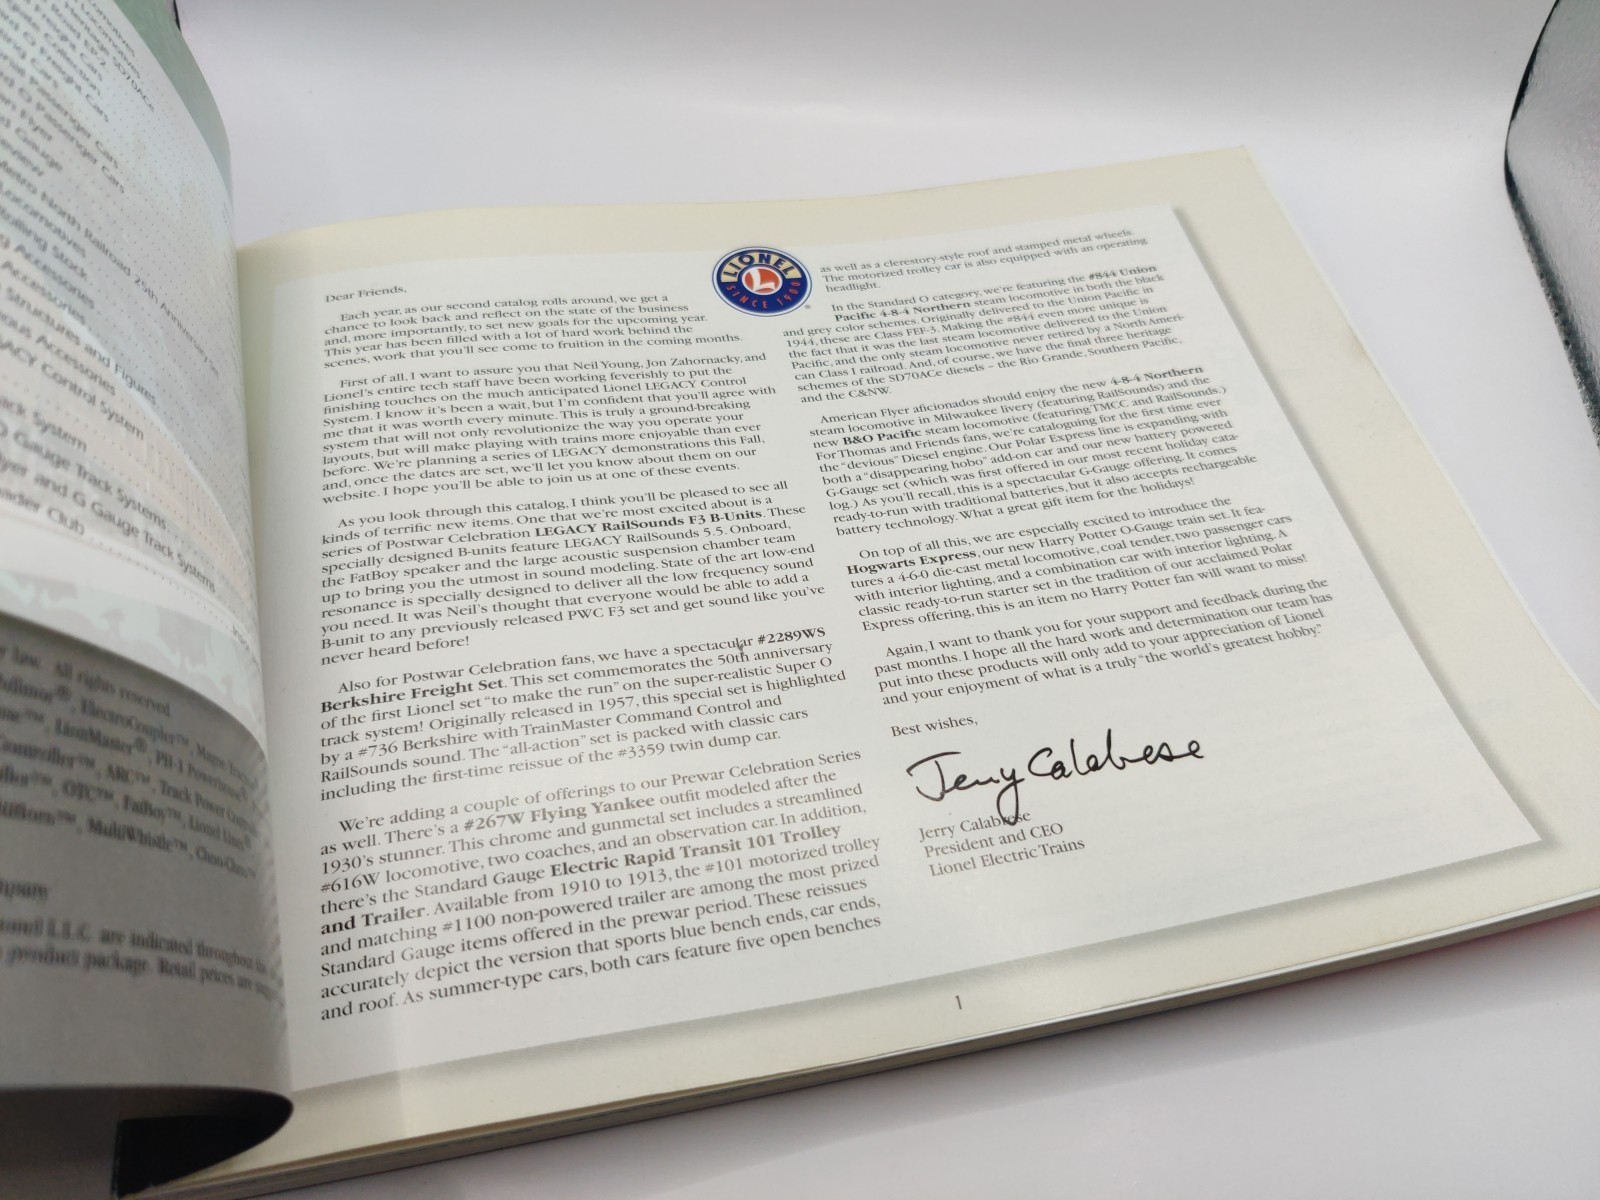 Locomotives
SD70ACe
Collection
Freight Cars
Passenger Cars
O Passenger Cars
Flyer
Gauge
Metro North Railroad 25th Anniversary
Locomotives
Rolling Stock
Accessories
Accessories
Structures and Figures
Accessories
LEGACY Control System
Track System
O Gauge Track Systems
Flyer and G Gauge Track Systems
Club
law. All rights reserved.
ElectroCoupler™,
LionMaster®, PH-1 Powerhouse®,
ARC™, Track Power
OTC™, FatBoy™, Lionel Lines®
MultiWhistle™,
L.L.C. are indicated throughout
product package. Retail prices are
LIONEL
L
SINCE 1900
Dear Friends,
Each year, as our second catalog rolls around, we get a
chance to look back and reflect on the state of the business
and, more importantly, to set new goals for the upcoming year.
This year has been filled with a lot of hard work behind the
scenes, work that you'll see come to fruition in the coming months.
First of all, I want to assure you that Neil Young, Jon Zahornacky, and
Lionel's entire tech staff have been working feverishly to put the
finishing touches on the much anticipated Lionel LEGACY Control
System. I know it's been a wait, but I'm confident that you'll agree with
me that it was worth every minute. This is truly a ground-breaking
system that will not only revolutionize the way you operate your
layouts, but will make playing with trains more enjoyable than ever
before. We're planning a series of LEGACY demonstrations this Fall,
and, once the dates are set, we'll let you know about them on our
website. I hope you'll be able to join us at one of these events.
As you look through this catalog, I think you'll be pleased to see all
kinds of terrific new items. One that we're most excited about is a
series of Postwar Celebration LEGACY RailSounds F3 B-Units. These
specially designed B-units feature LEGACY RailSounds 5.5. Onboard,
the FatBoy speaker and the large acoustic suspension chamber team
up to bring you the utmost in sound modeling. State of the art low-end
resonance is specially designed to deliver all the low frequency sound
you need. It was Neil's thought that everyone would be able to add a
B-unit to any previously released PWC F3 set and get sound like you've
never heard before!
Also for Postwar Celebration fans, we have a spectacular #2289WS
Berkshire Freight Set. This set commemorates the 50th anniversary
of the first Lionel set "to make the run" on the super-realistic Super O
track system! Originally released in 1957, this special set is highlighted
by a #736 Berkshire with TrainMaster Command Control and
RailSounds sound. The "all-action" set is packed with classic cars
including the first-time reissue of the #3359 twin dump car.
We're adding a couple of offerings to our Prewar Celebration Series
as well. There's a #267W Flying Yankee outfit modeled after the
1930's stunner. This chrome and gunmetal set includes a streamlined
#616W locomotive, two coaches, and an observation car. In addition,
there's the Standard Gauge Electric Rapid Transit 101 Trolley
and Trailer. Available from 1910 to 1913, the #101 motorized trolley
and matching #1100 non-powered trailer are among the most prized
Standard Gauge items offered in the prewar period. These reissues
accurately depict the version that sports blue bench ends, car ends,
and roof. As summer-type cars, both cars feature five open benches
as well as a clerestory-style roof and stamped metal wheels.
The motorized trolley car is also equipped with an operating
headlight.
In the Standard O category, we're featuring the #844 Union
Pacific 4-8-4 Northern steam locomotive in both the black
and grey color schemes. Originally delivered to the Union Pacific in
1944, these are Class FEF-3. Making the #844 even more unique is
the fact that it was the last steam locomotive delivered to the Union
Pacific, and the only steam locomotive never retired by a North Ameri-
can Class I railroad. And, of course, we have the final three heritage
schemes of the SD70ACe diesels – the Rio Grande, Southern Pacific,
and the C&NW.
American Flyer aficionados should enjoy the new 4-8-4 Northern
steam locomotive in Milwaukee livery (featuring RailSounds) and the
new B&O Pacific steam locomotive (featuring TMCC and RailSounds.)
For Thomas and Friends fans, we're cataloguing for the first time ever
the "devious" Diesel engine. Our Polar Express line is expanding with
both a "disappearing hobo" add-on car and our new battery powered
G-Gauge set (which was first offered in our most recent holiday cata-
log.) As you'll recall, this is a spectacular G-Gauge offering. It comes
ready-to-run with traditional batteries, but it also accepts rechargeable
battery technology. What a great gift item for the holidays!
On top of all this, we are especially excited to introduce the
Hogwarts Express, our new Harry Potter O-Gauge train set. It fea-
tures a 4-6-0 die-cast metal locomotive, coal tender, two passenger cars
with interior lighting, and a combination car with interior lighting. A
classic ready-to-run starter set in the tradition of our acclaimed Polar
Express offering, this is an item no Harry Potter fan will want to miss!
Again, I want to thank you for your support and feedback during the
past months. I hope all the hard work and determination our team has
put into these products will only add to your appreciation of Lionel
and your enjoyment of what is a truly "the world's greatest hobby."
Best wishes,
Jerry Calabrese
Jerry Calabrese
President and CEO
Lionel Electric Trains
1